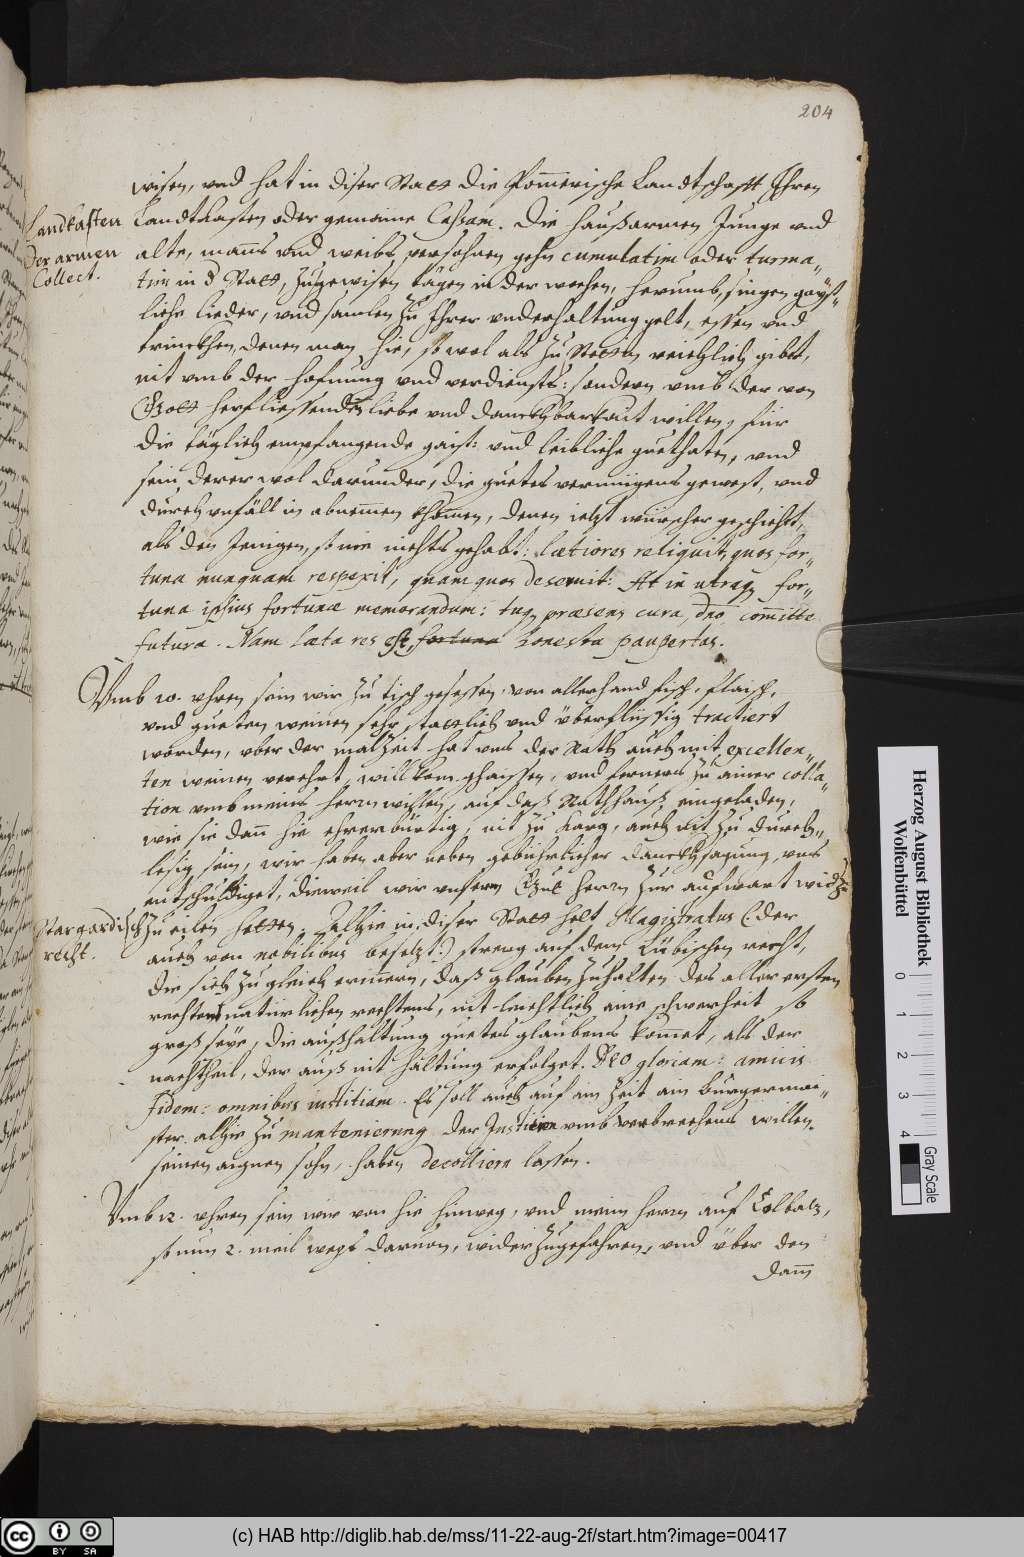 204
wisen, vnd hat in diser Statt die Pomerische Landtschafft Ihren
Landkasten
Landtkasten oder gemaine Cassam. Die haußarmen Junge vnd
der armen
Collect.
alte, mans vnd weibs persohnen gehn cumulatim oder turma-
tim in d Statt, zu gewisen tägen in der wochen, herumb, singen gayst-
liche lieder, vnd samlen zu Ihrer vnderhaltung gelt, essen vnd
trinckhen, denen man hie, so wol als zu Stettin reichlich gibt,
nit vmb der hofnung vnd verdiensts: sondern vmb der von
Gott herfliessenden liebe vnd danckhbarkait willen, für
die täglich empfangende gaist: vnd leibliche guethaten, vnd
sein derer wol darunder, die guetes vermügens gewest, vnd
durch vnfäll in abnemen khomen, denen ietzt würscher geschicht,
als den Jenigen, so nie nichts gehabt: lætiores reliquit, quos for-
tuna nunquam respexit, quam quos deseruit: At in utraq for-
tuna ipsius fortunæ memorandum: tuq præsens cura, dno comitte
futura. Nam læta res est, fortuna honesta paupertas.
Vmb 10. vhren sein wir zu tisch gesessen, von allerhand fisch, flaisch,
vnd gueten weinen sehr stattlich vnd überflüssig tractiert
worden, vber der malzeit hat vns der Rath auch mit excellen-
ten weinen verehrt, willkom ghaissen, vnd ferners zu ainer colla-
tion vmb meines herrn willen, auf daß Rathhauß eingeladen,
wie sie dan hie ehrerbürtig, nit zu karg, auch nit zu durch-
lesig sein, wir haben aber neben gebührlicher dancksagung, vns
entschuldiget, dieweil wir vnserm Gnd herrn zur aufwart wider
Stargardisch
recht.
zu eilen hetten. Alhie in diser Statt helt Magistratus (: der
auch von nobilibus besetzt :) streng auf dem Lübischen recht,
die sich zu gleich erinnern, daß glauben zuhalten des aller ersten
rechtens natürlichen rechtens, nit leichtlich aine schwerheit so
groß seye, die außhaltung guetes glaubens komet, als der
nachtheil, der auß nit haltung erfolget. DEO gloriam: amicis
fidem: omnibus iustitiam. Es soll auch auf ein Zeit ain burgermai-
ster alhie zu mantenierung der Justitien vmb verbrechens willen,
seinen aignen sohn, haben decolliern lassen.
Vmb 12. vhren sein wir von hie hinweg, vnd meim herrn auf Colbatz,
so nun 2. meil wegs daruon, wider zugefahren, vnd über den
dam
Herzog August Bibliothek
Wolfenbüttel
0 1 2 3 4
Gray Scale
(c) HAB http://diglib.hab.de/mss/11-22-aug-2f/start.htm?image=00417
cc BY SA